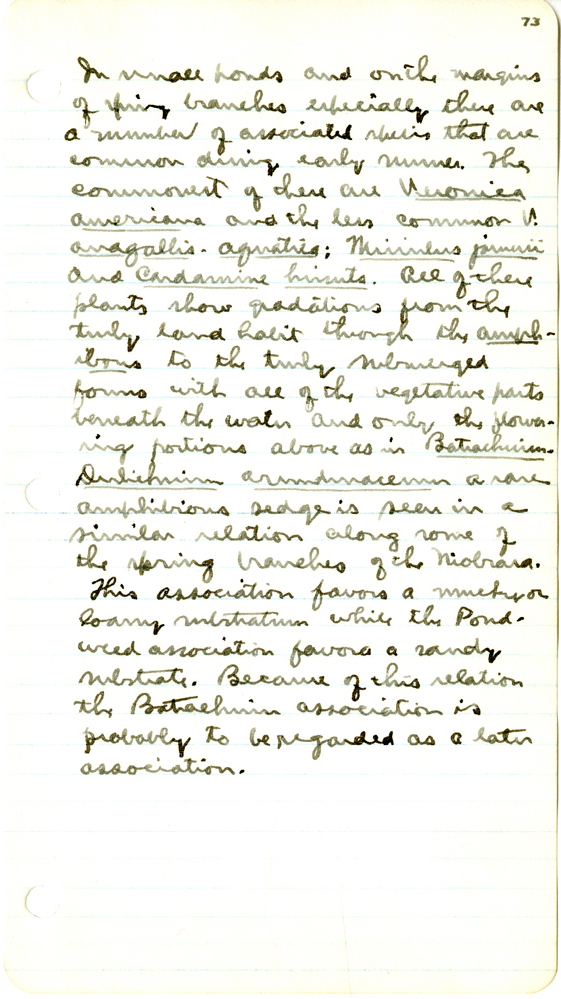 73
In small ponds and on the margins
of spring branches especially there are
a number of associated species that are
common during early summer. The
commonest of these are Veronica
americana and the less common V.
anagallis-aquatica; Mimulus jamesii
and Cardamine hirsuta. All of these
plants show gradations from the
truly land habit through the amph-
ibous to the truly submerged
forms with all of the vegetative parts
beneath the water and only the flower-
ing portions above as in Batrachium.
Dulichium arundinaceum a rare
amphibious sedge is seen in a
similar relation along some of
the spring branches of the Niobrara.
This association favors a mucky or
loamy substratum while the Pond-
weed association favors a sandy
substrate. Because of this relation
the Batrachium association is
probably to be regarded as a later
association.